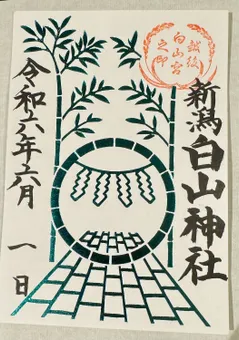 新潟白山神社
越後
白山宮
之印
令和六年六月
一日